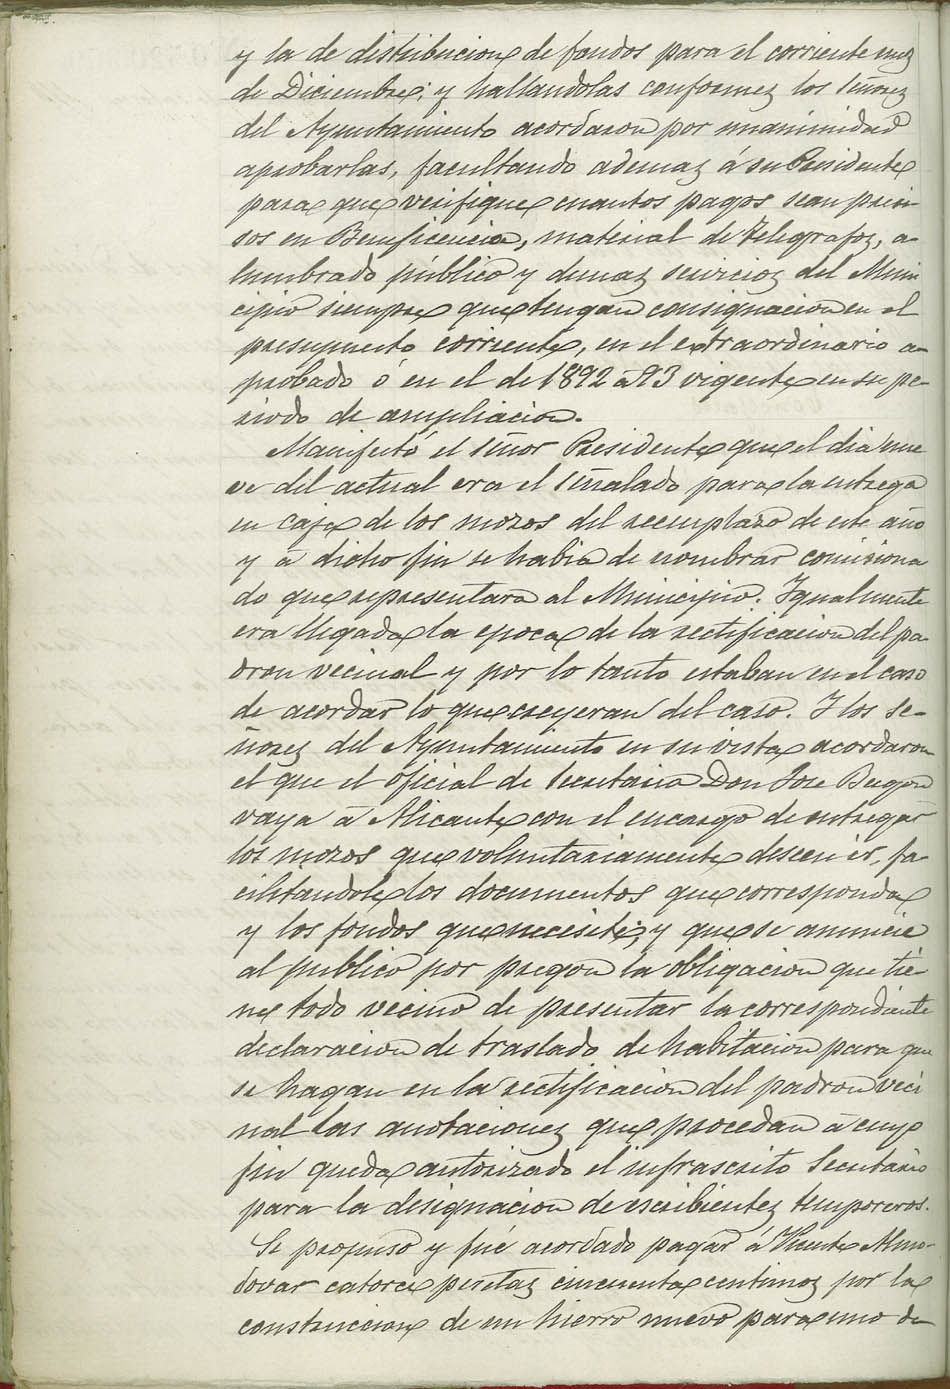 y la de distribucion de fondos para el corriente mes
de Diciembre; y hallandolas conformes los Señores
del Ayuntamiento acordaron por unanimidad
aprobarlas, facultando ademas á su Presidente
para que verifique cuantos pagos sean preci-
sos en Beneficencia, material de Telegrafos, a-
lumbrado público y demas servicios del Muni
cipio siempre que tengan consignacion en el
presupuesto corriente, en el extraordinario a-
probado ó en el de 1892 á 93 vigente en su pe-
riodo de ampliacion.
Manifestó el señor Presidente que el dia nue
ve del actual era el señalado para la entrega
en caja de los mozos del reemplazo de este año
y á dicho fin se habia de nombrar comisiona
do que representara al Municipio. Igualmente
era llegada la epoca de la rectificacion del pa-
dron vecinal y por lo tanto estaban en el caso
de acordar lo que creyeran del caso. Y los Se-
ñores del Ayuntamiento en su vista acordaron
el que el oficial de Secretaria Don Jose
vaya á Alicante con el encargo de entregar
los mozos que voluntariamente deseen ir, fa-
cilitandole los documentos que corresponda
y los fondos que necesite; y que se anuncie
al publico por pregon la obligacion que tie-
ne todo vecino de presentar la correspondiente
declaracion de traslado de habitacion para que
se hagan en la rectificacion del padron veci
nal las anotaciones que procedan á cuyo
fin queda autorizado el infrascrito Secretario
para la designacion de escribientes temporeros.
Se propuso y fué acordado pagar á Vicente Almo-
dovar catorce pesetas cincuenta centimos por la
construccion de un hierro nuevo para uno de